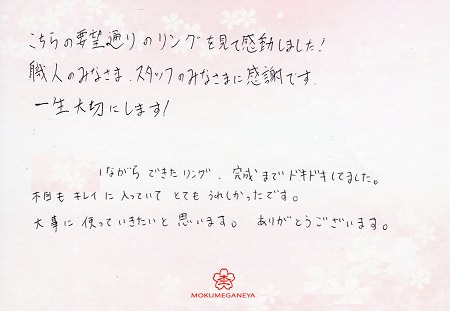 こちらの要望通りのリングを見て感動しました!
職人のみなさま、スタッフのみなさまに感謝です.
一生大切にします!
しながら できたリング、完成までドキドキしてました。
木目も キレイに入っていて とても うれしかったです。
大事に 使っていきたいと 思います。 ありがとうございます。
MOKUMEGANEYA